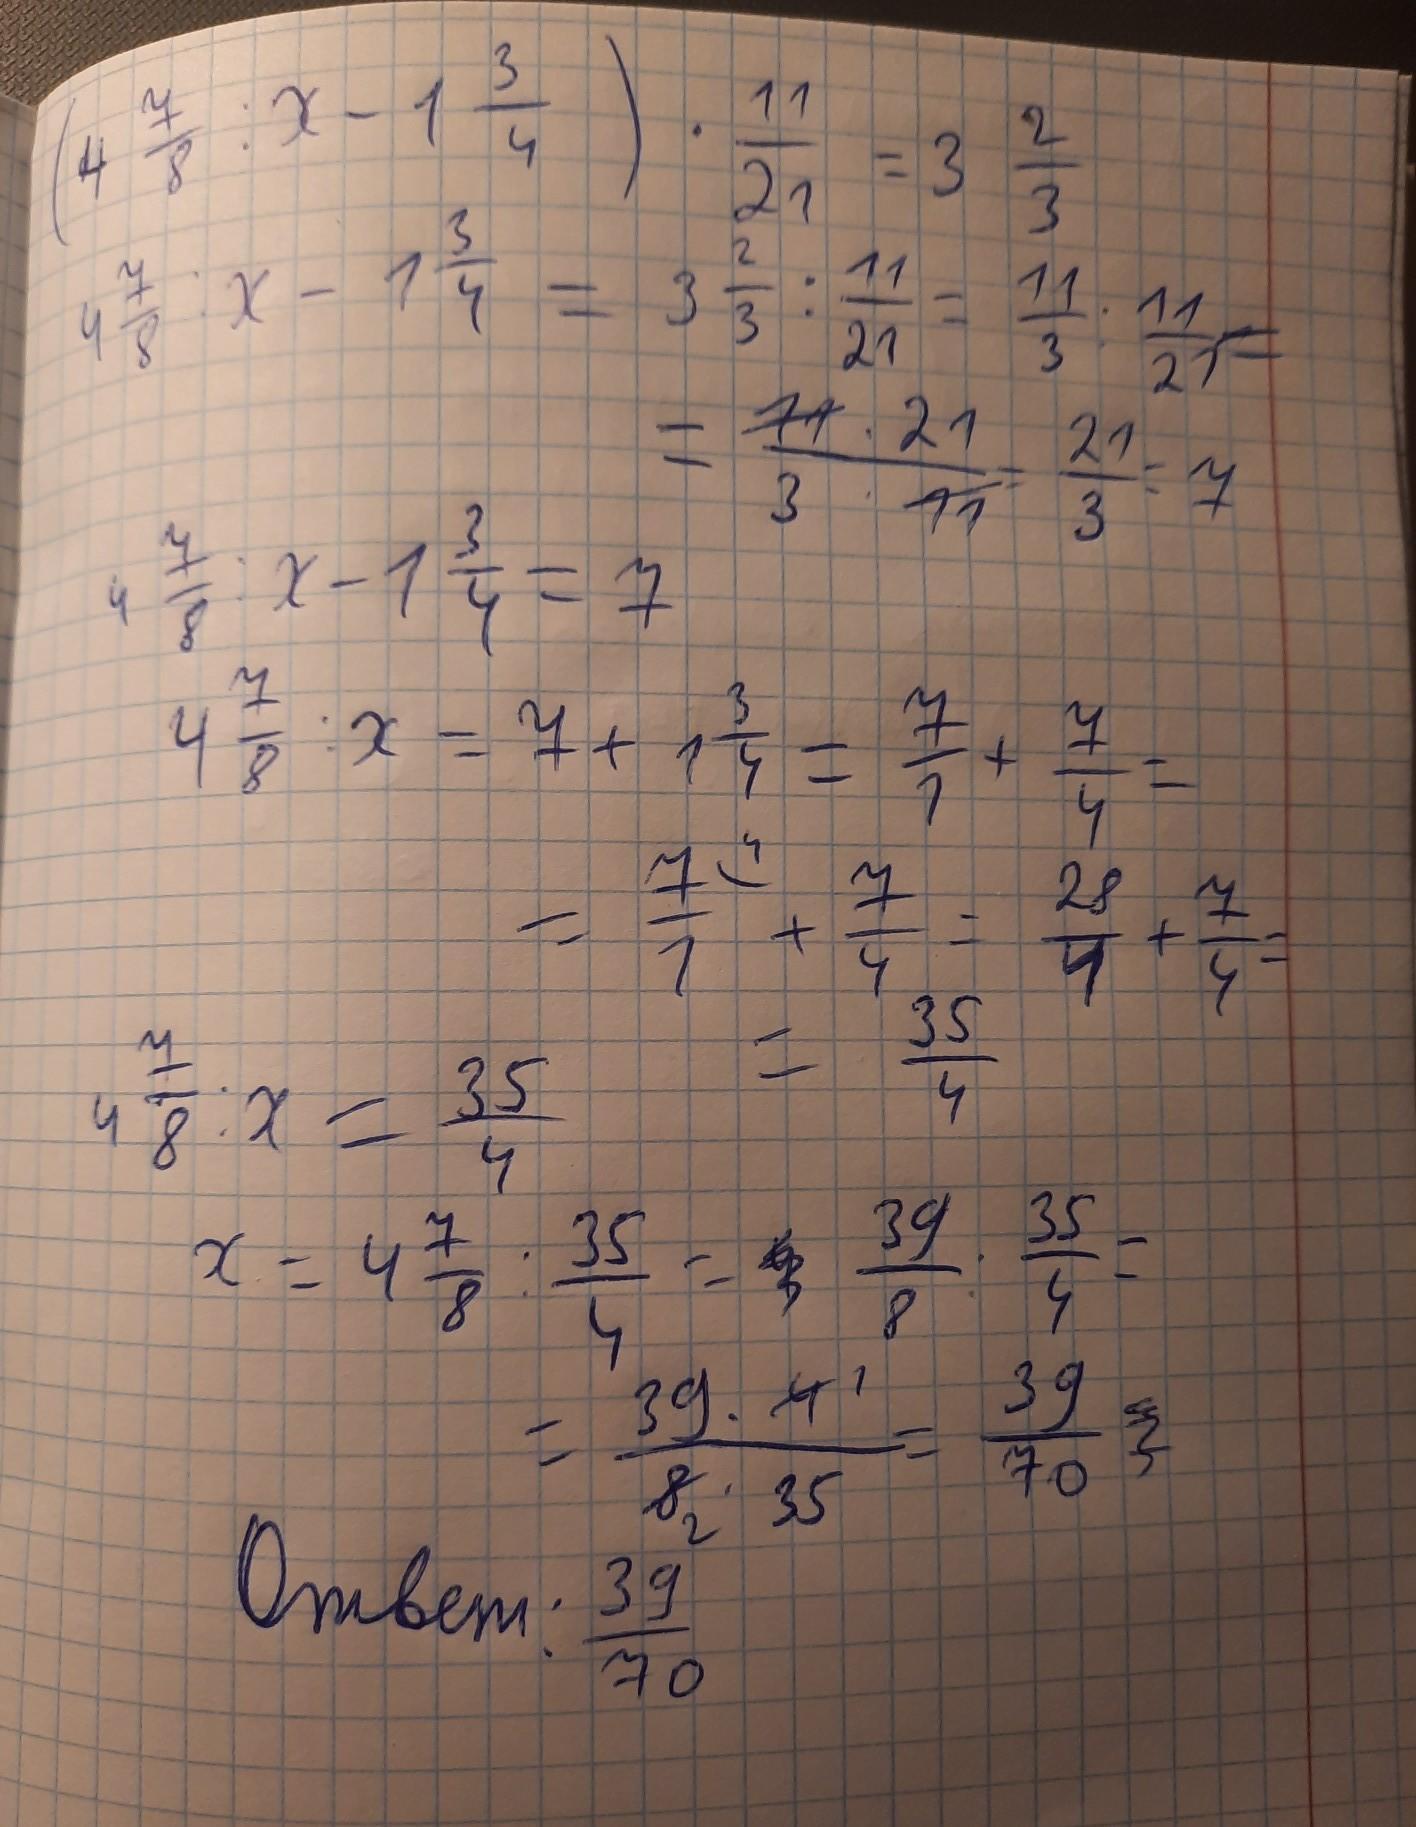 (4 7/8 : x - 1 3/4) · 11/21 = 3 2/3
4 7/8 : x - 1 3/4 = 3 2/3 : 11/21 = 11/3 : 11/21 =
= 11 · 21 / 3 · 11 = 21/3 = 7
4 7/8 : x - 1 3/4 = 7
4 7/8 : x = 7 + 1 3/4 = 7/1 + 7/4 =
= 7/1 (4 + 7/4 = 28/4 + 7/4 =
= 35/4
4 7/8 : x = 35/4
x = 4 7/8 : 35/4 = 39/8 : 35/4 =
= 39 · 4 1 / 8 2 · 35 = 39/70
Ответ: 39/70